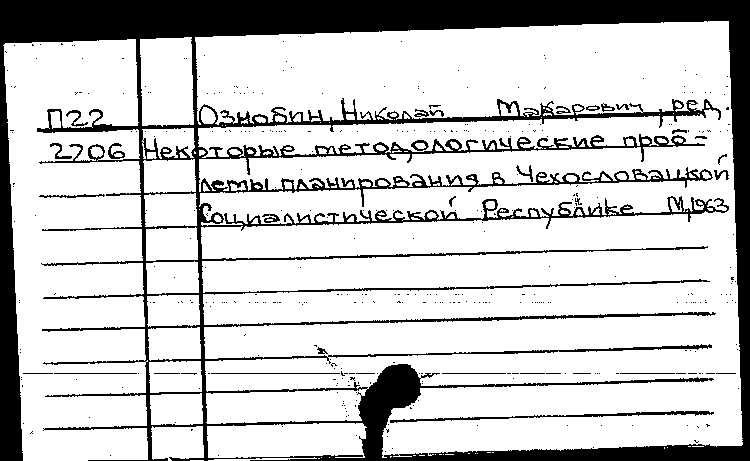 П22 Ознобин, Николай Макарович, ред.
2706 Некоторые методологические проб=
лемы планирования в Чехословацкой
Социалистической Республике М, 1963